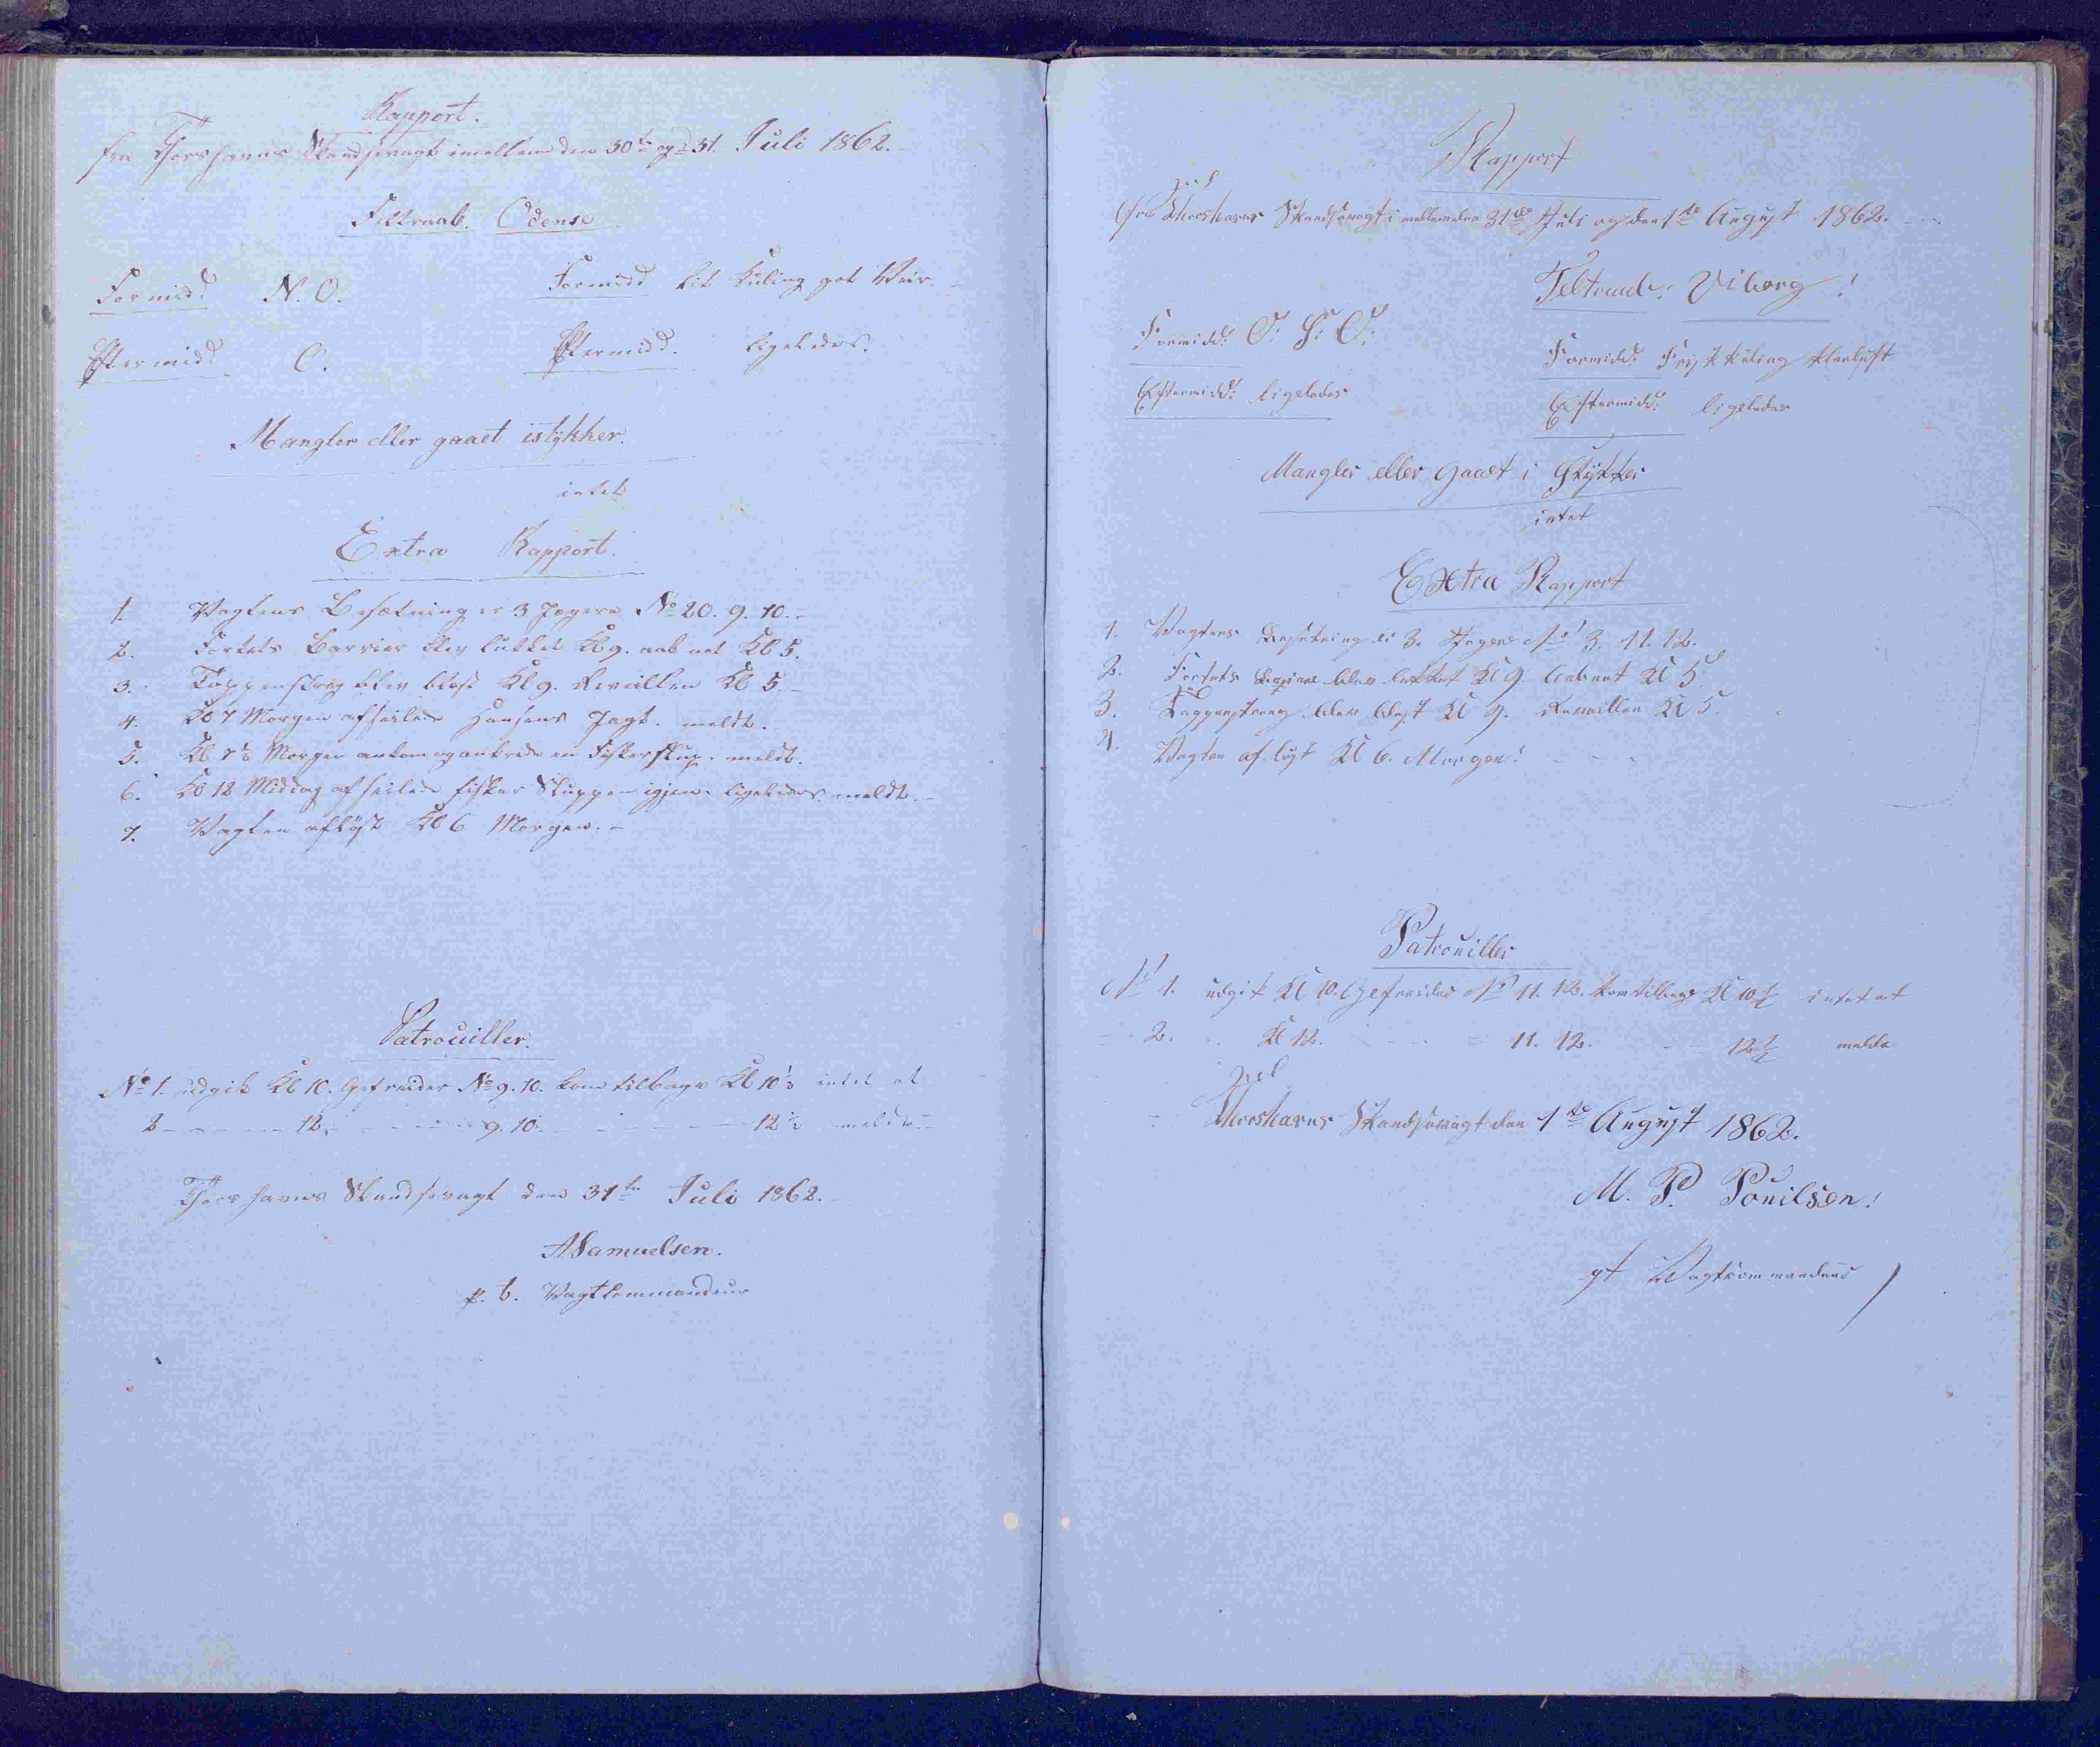 Rapport.
fra Thorshavns Skandsevagt imellem den 30te og 31. Juli 1862.
Feltraab. Odense
Formidd. N. O. Formidd lit Kuling got Veir.
Eftermidd. O. Eftermidd. ligeledes.
Mangler eller gaaet istykker.
intet
Extra Rapport.
1. Vagtens Besætning er 3 Jægere No 20. 9. 10.
2. Fortets Barrier blev lukket Kl 9. aabnet Kl 5.
3. Tappenstreg blev blæst Kl 9. Revallien Kl 5.
4. Kl 7 Morgen afseilede Hansens Jagt. meldt.
5. Kl 7½ Morgen ankom og ankrede en Fiskerslup. meldt.
6. Kl 12 Middag afseilede fisker Sluppen igjen. ligeledes meldt.
7. Vagten afløst Kl 6 Morgen.
Patrouiller.
No 1. udgik Kl 10. Gefreider No 9. 10. kom tilbage Kl 10½ intet at
2 - - - 12. - - - 9. 10. - - - 12½ melde.
Thorshavns Skandsevagt den 31te Juli 1862.
A Samuelsen.
p. t. Vagtkommandeur
Rapport
fra Thorshavns Skandsevagt imellem den 31te Juli og den 1ste August 1862.
Feltraab: Viborg!
Formidd: O. S. O. Formidd: Frisk Kuling klarluft
Eftermidd: ligeledes Eftermidd: ligeledes
Mangler eller Gaaet i Stykker
intet
Extra Rapport
1. Vagtens Besætning er 3. Jægere No 3. 11. 12.
2. Fortets Bariere blev lukket Kl 9 Aabnet Kl 5.
3. Tappenstreng blev blæst Kl 9. Revaillen Kl 5.
4. Vagten afløst Kl 6. Morgen!
Patrouiller
No 1. udgik Kl 10. Gefreider No 11. 12. kom tilbage Kl 10½ intet at
2. Kl 12. - - - 11. 12. - 12½ melde
Thorshavns Skandsevagt den 1ste August 1862.
M. P. Pouilsen!
gt Vagtcommandeur